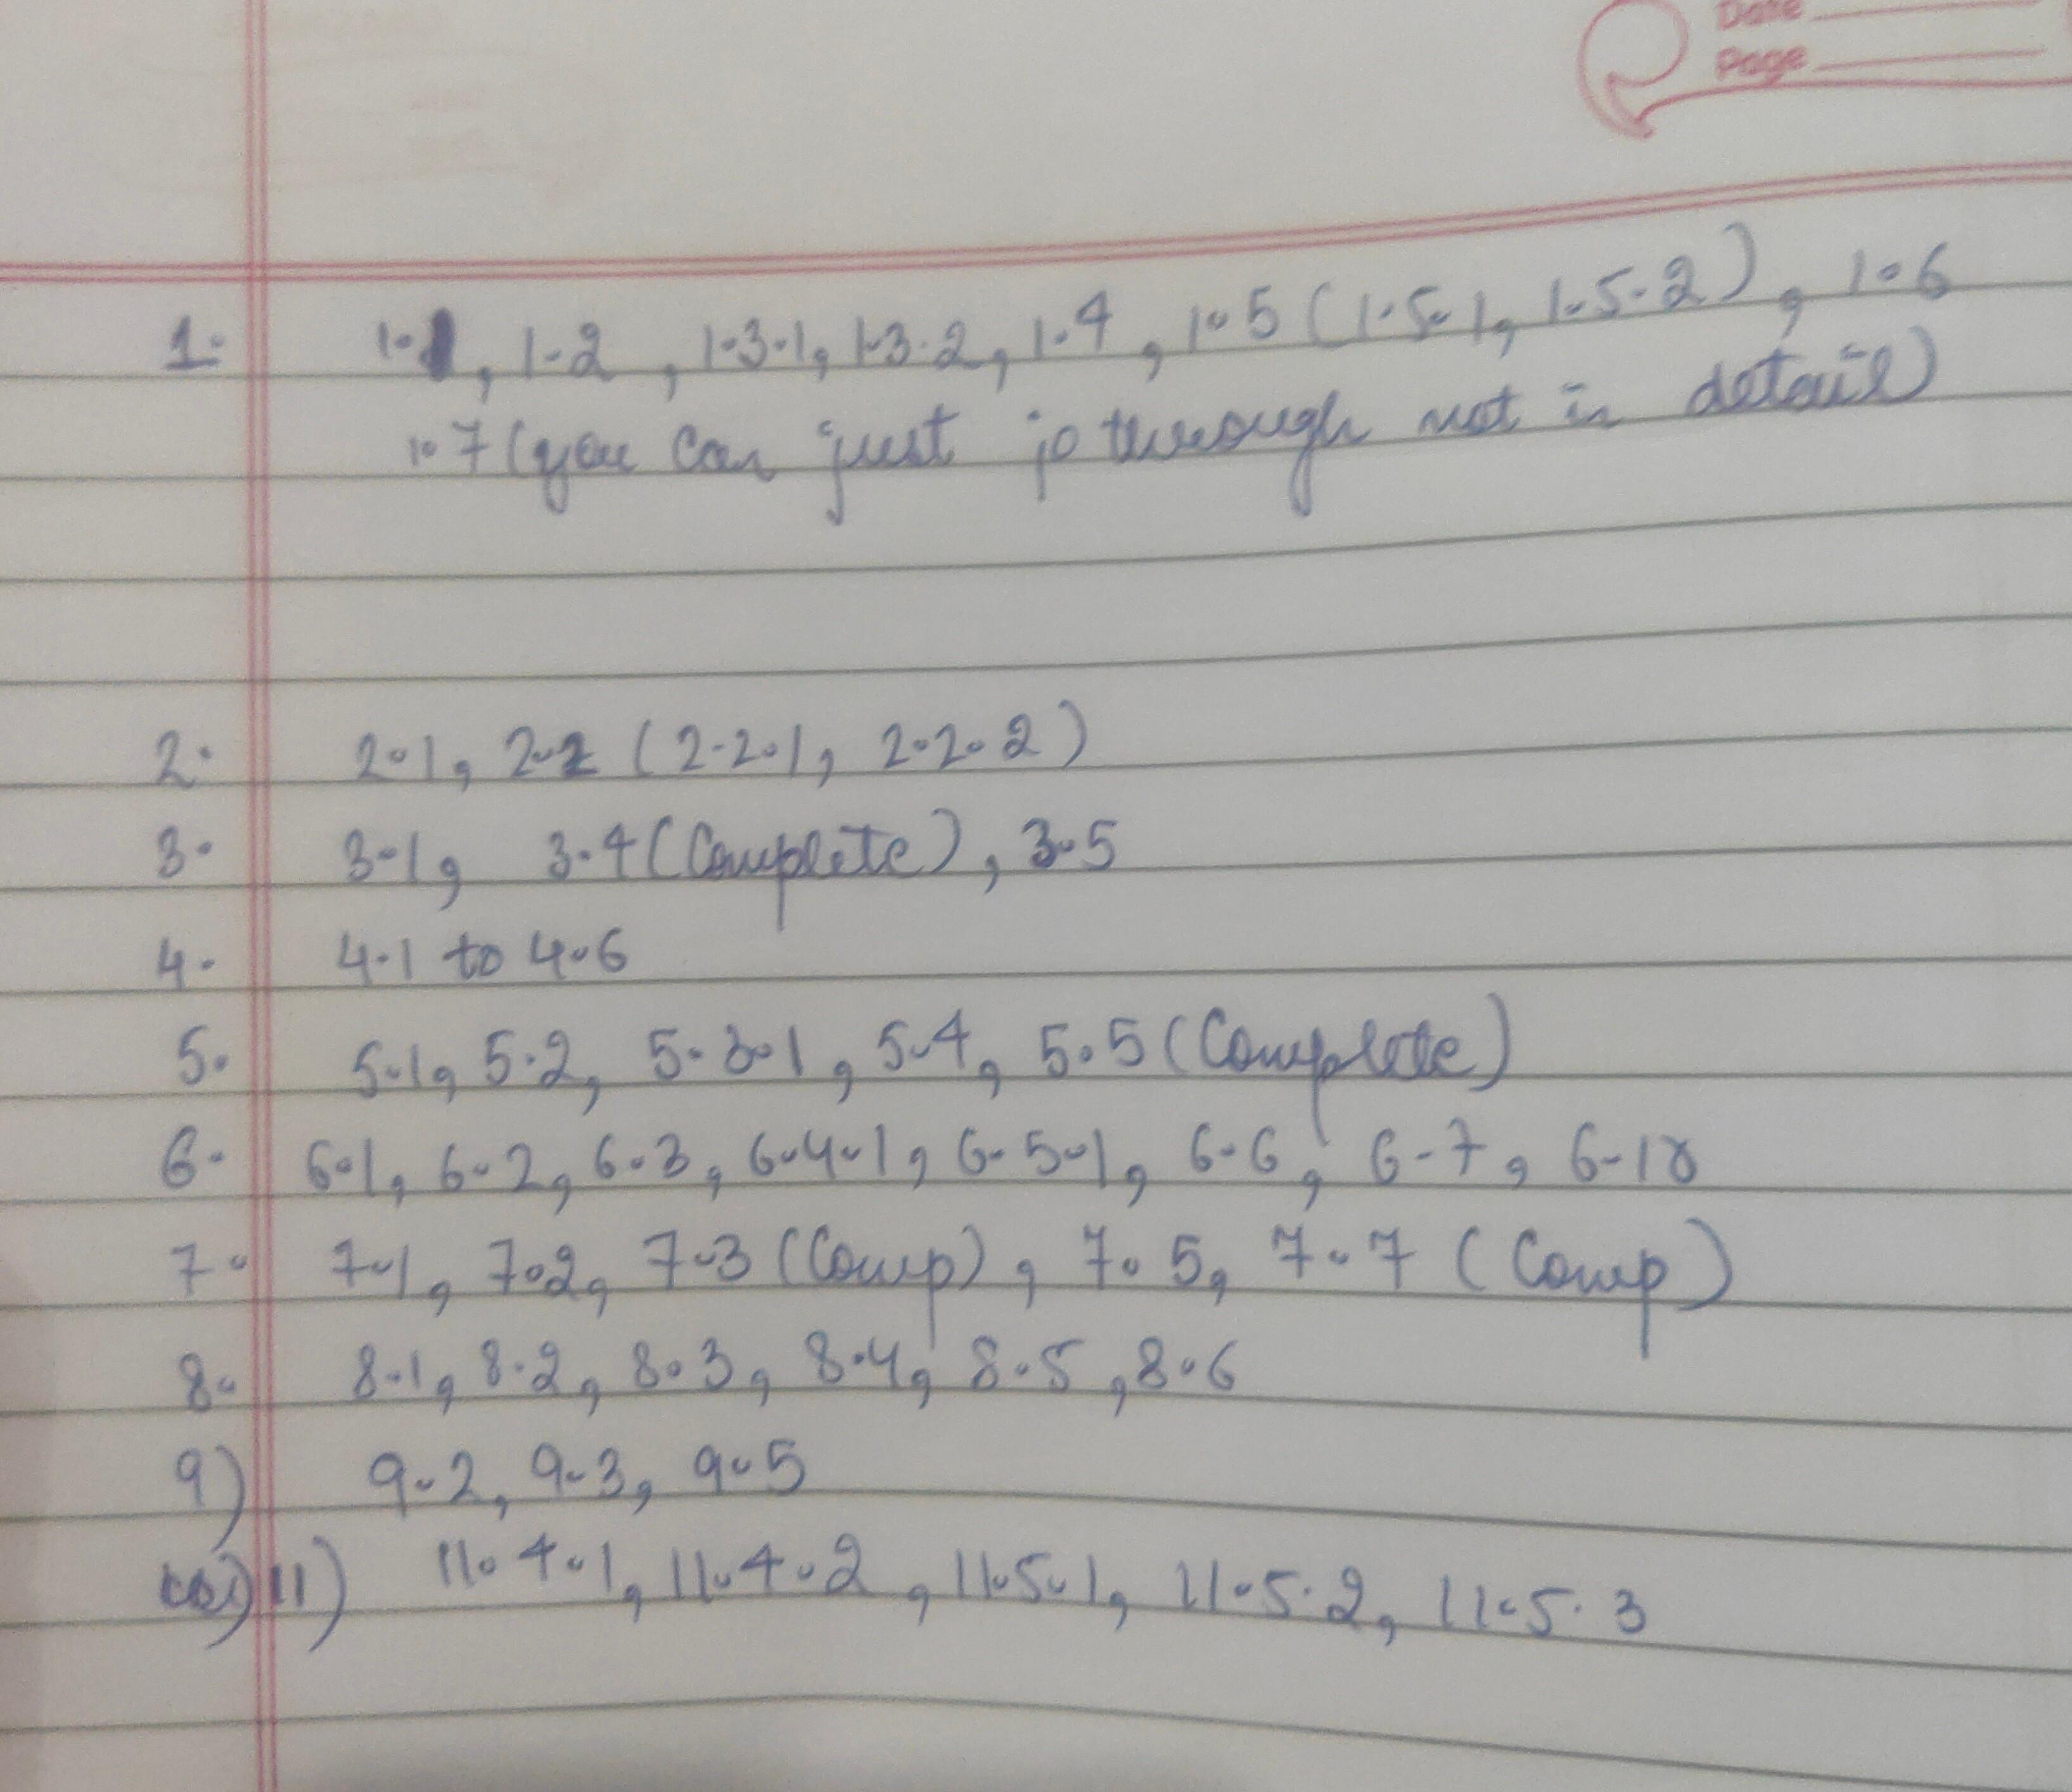 Date
Page
1. 1.1, 1.2, 1.3.1, 1.3.2, 1.4, 1.5 (1.5.1, 1.5.2), 1.6
1.7 (you can just go through not in detail)
2. 2.1, 2.2 (2.2.1, 2.2.2)
3. 3.1, 3.4 (Complete), 3.5
4. 4.1 to 4.6
5. 5.1, 5.2, 5.3.1, 5.4, 5.5 (Complete)
6. 6.1, 6.2, 6.3, 6.4.1, 6.5.1, 6.6, 6.7, 6.10
7. 7.1, 7.2, 7.3 (Comp), 7.5, 7.7 (Comp)
8. 8.1, 8.2, 8.3, 8.4, 8.5, 8.6
9) 9.2, 9.3, 9.5
11) 11.4.1, 11.4.2, 11.5.1, 11.5.2, 11.5.3